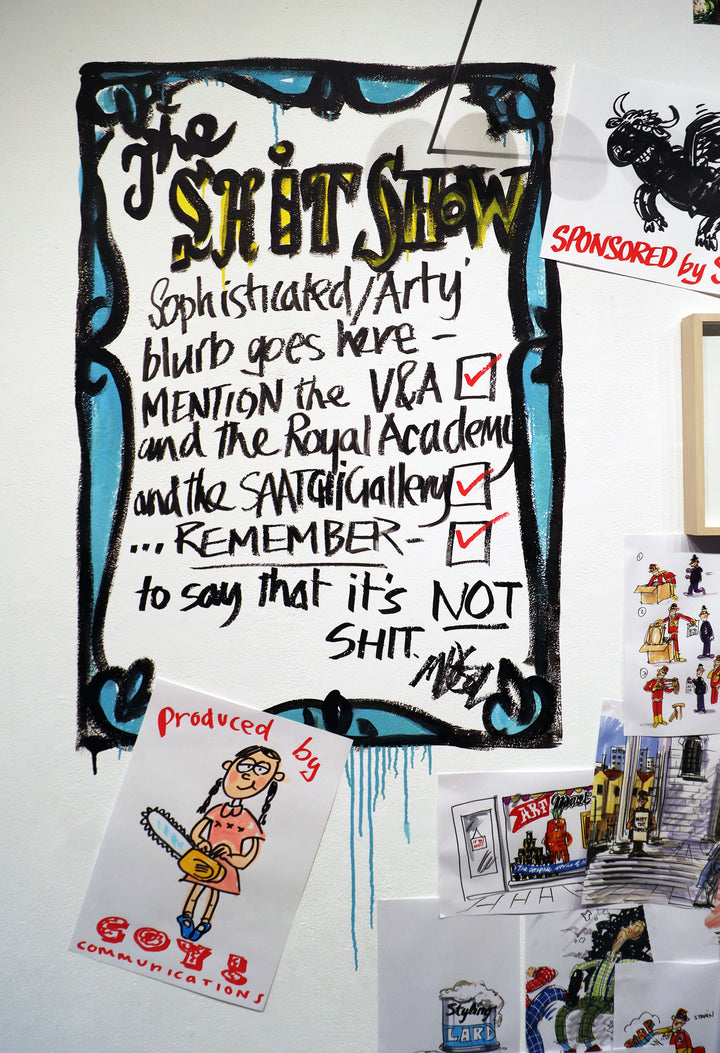 The
SHiT SHOW
Sophisticated/'Arty'
blurb goes here –
MENTION the V&A
and the Royal Academy
and the SAATCHi Gallery
... REMEMBER –
to say that it's NOT
SHIT.
SPONSORED by
Produced by
COY!
communications
ART
Styling
LARD